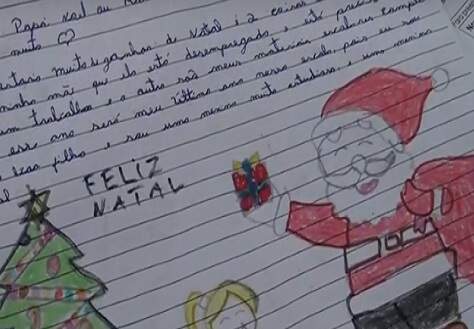 Papai Noel ou
muito
muito ganhar de Natal é 2 coisas
minha mãe que ela está desempregada e está
um trabalho e a outra são meus materiais escolares
esse ano será meu último ano nessa escola, pois eu sou
filha e sou uma menina muito estudiosa e uma menina
FELIZ
NATAL